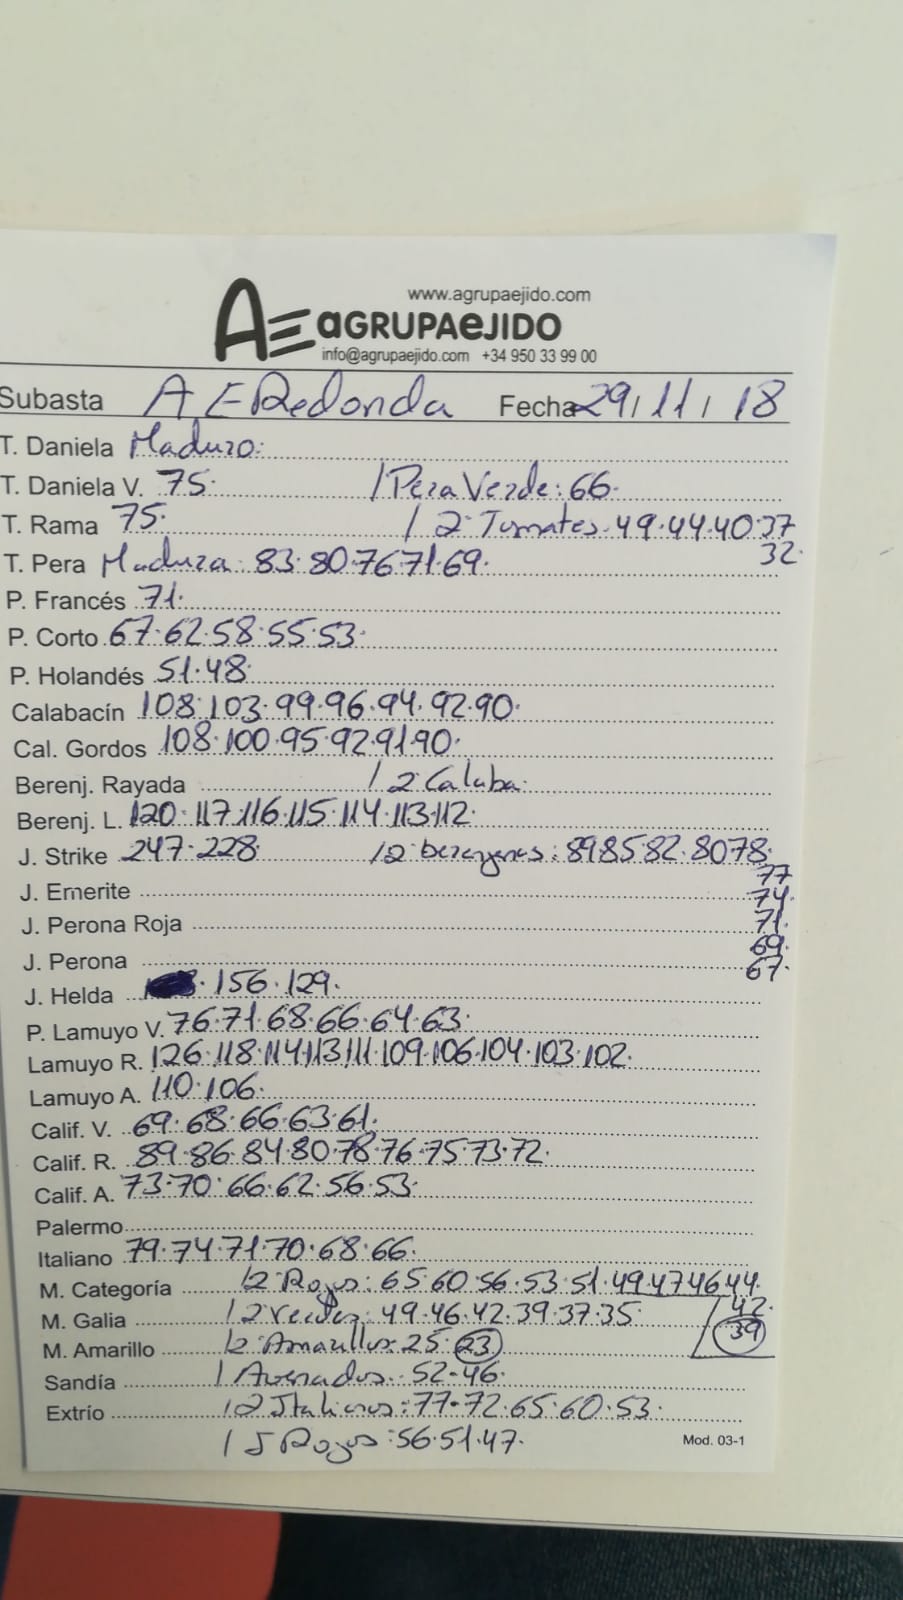 www.agrupaejido.com
AE aGRUPAeJIDO
info@agrupaejido.com +34 950 33 99 00
Subasta A E Redonda Fecha 29/11/18
T. Daniela Maduro:
T. Daniela V. 75. / Pera Verde: 66.
T. Rama 75. / 2ª Tomates. 49.44.40.37
32.
T. Pera Madura: 83.80.76.71.69.
P. Francés 71.
P. Corto 67.62.58.55.53.
P. Holandés 51.48.
Calabacín 108.103.99.96.94.92.90.
Cal. Gordos 108.100.95.92.91.90.
Berenj. Rayada / 2ª Calaba:
Berenj. L. 120.117.116.115.114.113.112.
J. Strike 247.228. / 2ª berengenes: 89.85.82.80.78.
77
J. Emerite 74.
J. Perona Roja 71.
69.
J. Perona 67.
J. Helda . 156.129.
P. Lamuyo V. 76.71.68.66.64.63.
Lamuyo R. 126.118.114.113.111.109.106.104.103.102.
Lamuyo A. 110.106.
Calif. V. 69.68.66.63.61.
Calif. R. 89.86.84.80.78.76.75.73.72.
Calif. A. 73.70.66.62.56.53.
Palermo
Italiano 79.74.71.70.68.66.
M. Categoría / 2ª Rojos: 65.60.56.53.51.49.47.46.44.
42.
M. Galia / 2ª Verdes: 49.46.42.39.37.35
39
M. Amarillo / 2ª Amarillos: 25.23
Sandía / Asurados: 52.46.
Extrío / 2ª Italianos: 77.72.65.60.53.
/ J Rojos: 56.51.47.
Mod. 03-1